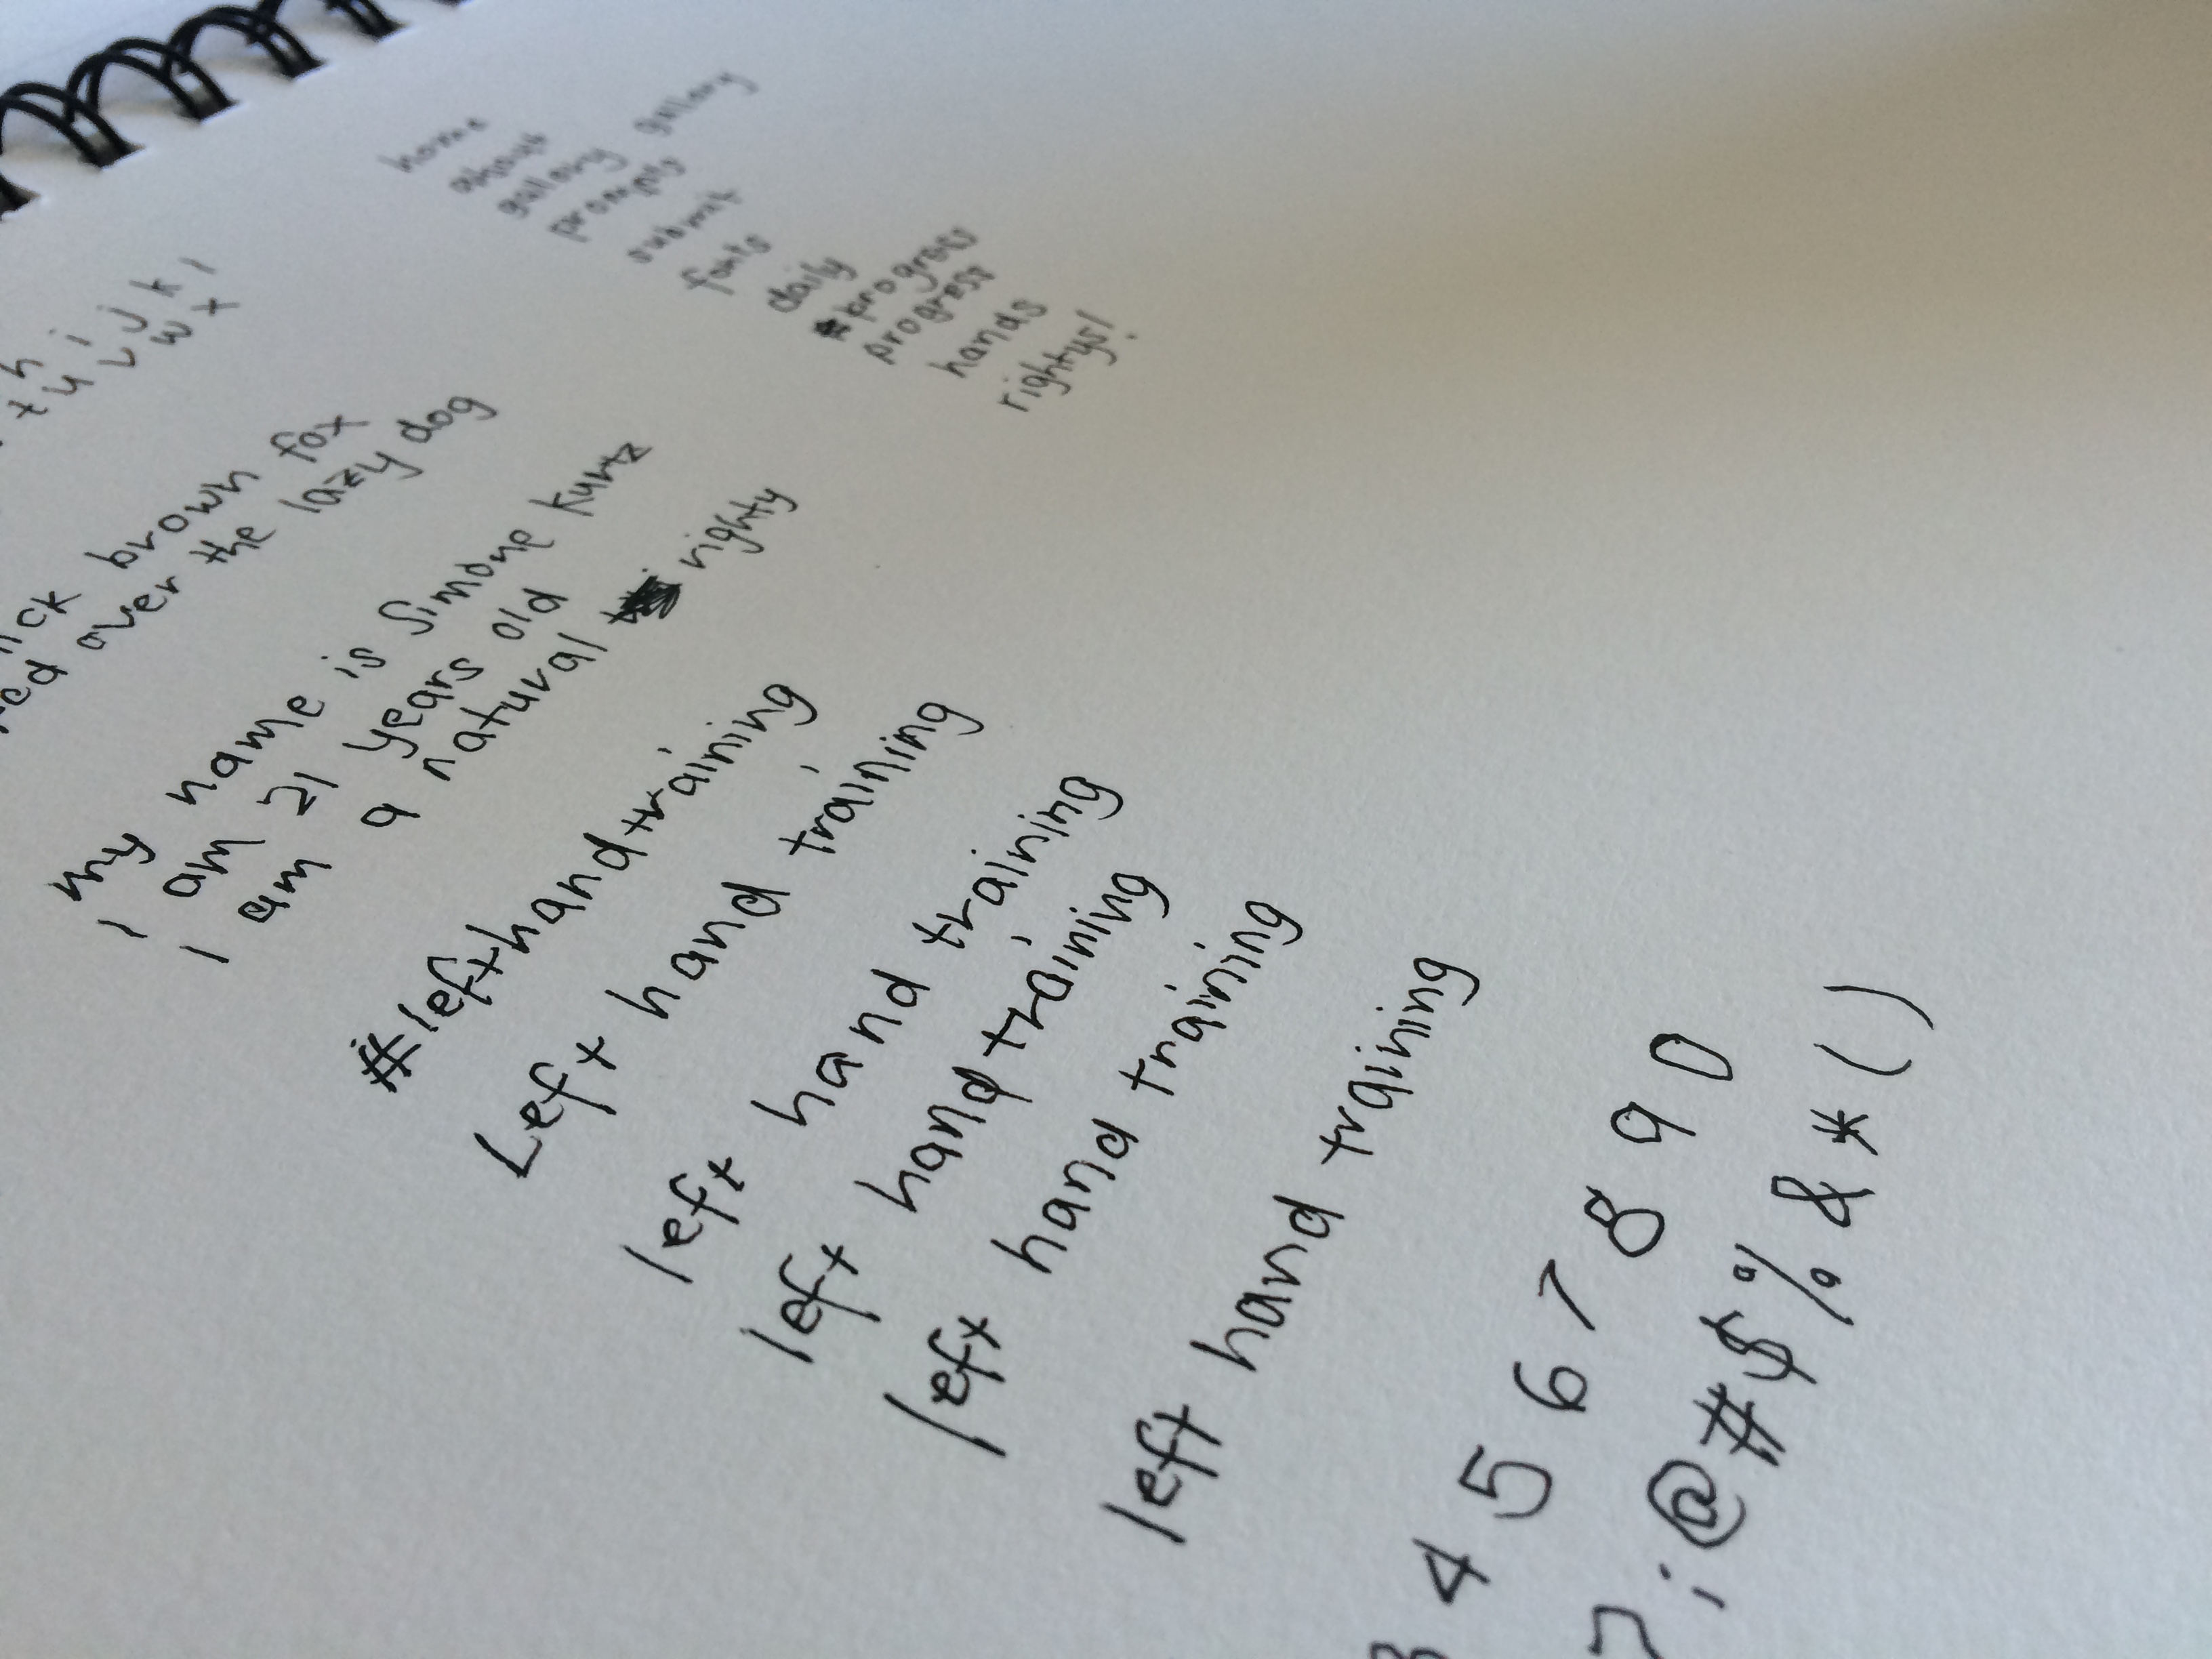 h i j k l
t u v w x
ick brown fox
ed over the lazy dog
my name is Simone Kurtz
i am 21 years old
i am a natural righty
#lefthandtraining
Left hand training
left hand training
left hand training
left hand training
left hand training
3 4 5 6 7 8 9 0
? ; @ # $ % & * ( )
home
about
gallery gallery
prompts
submit
fonts
daily
progress
progress
hands
rightys!